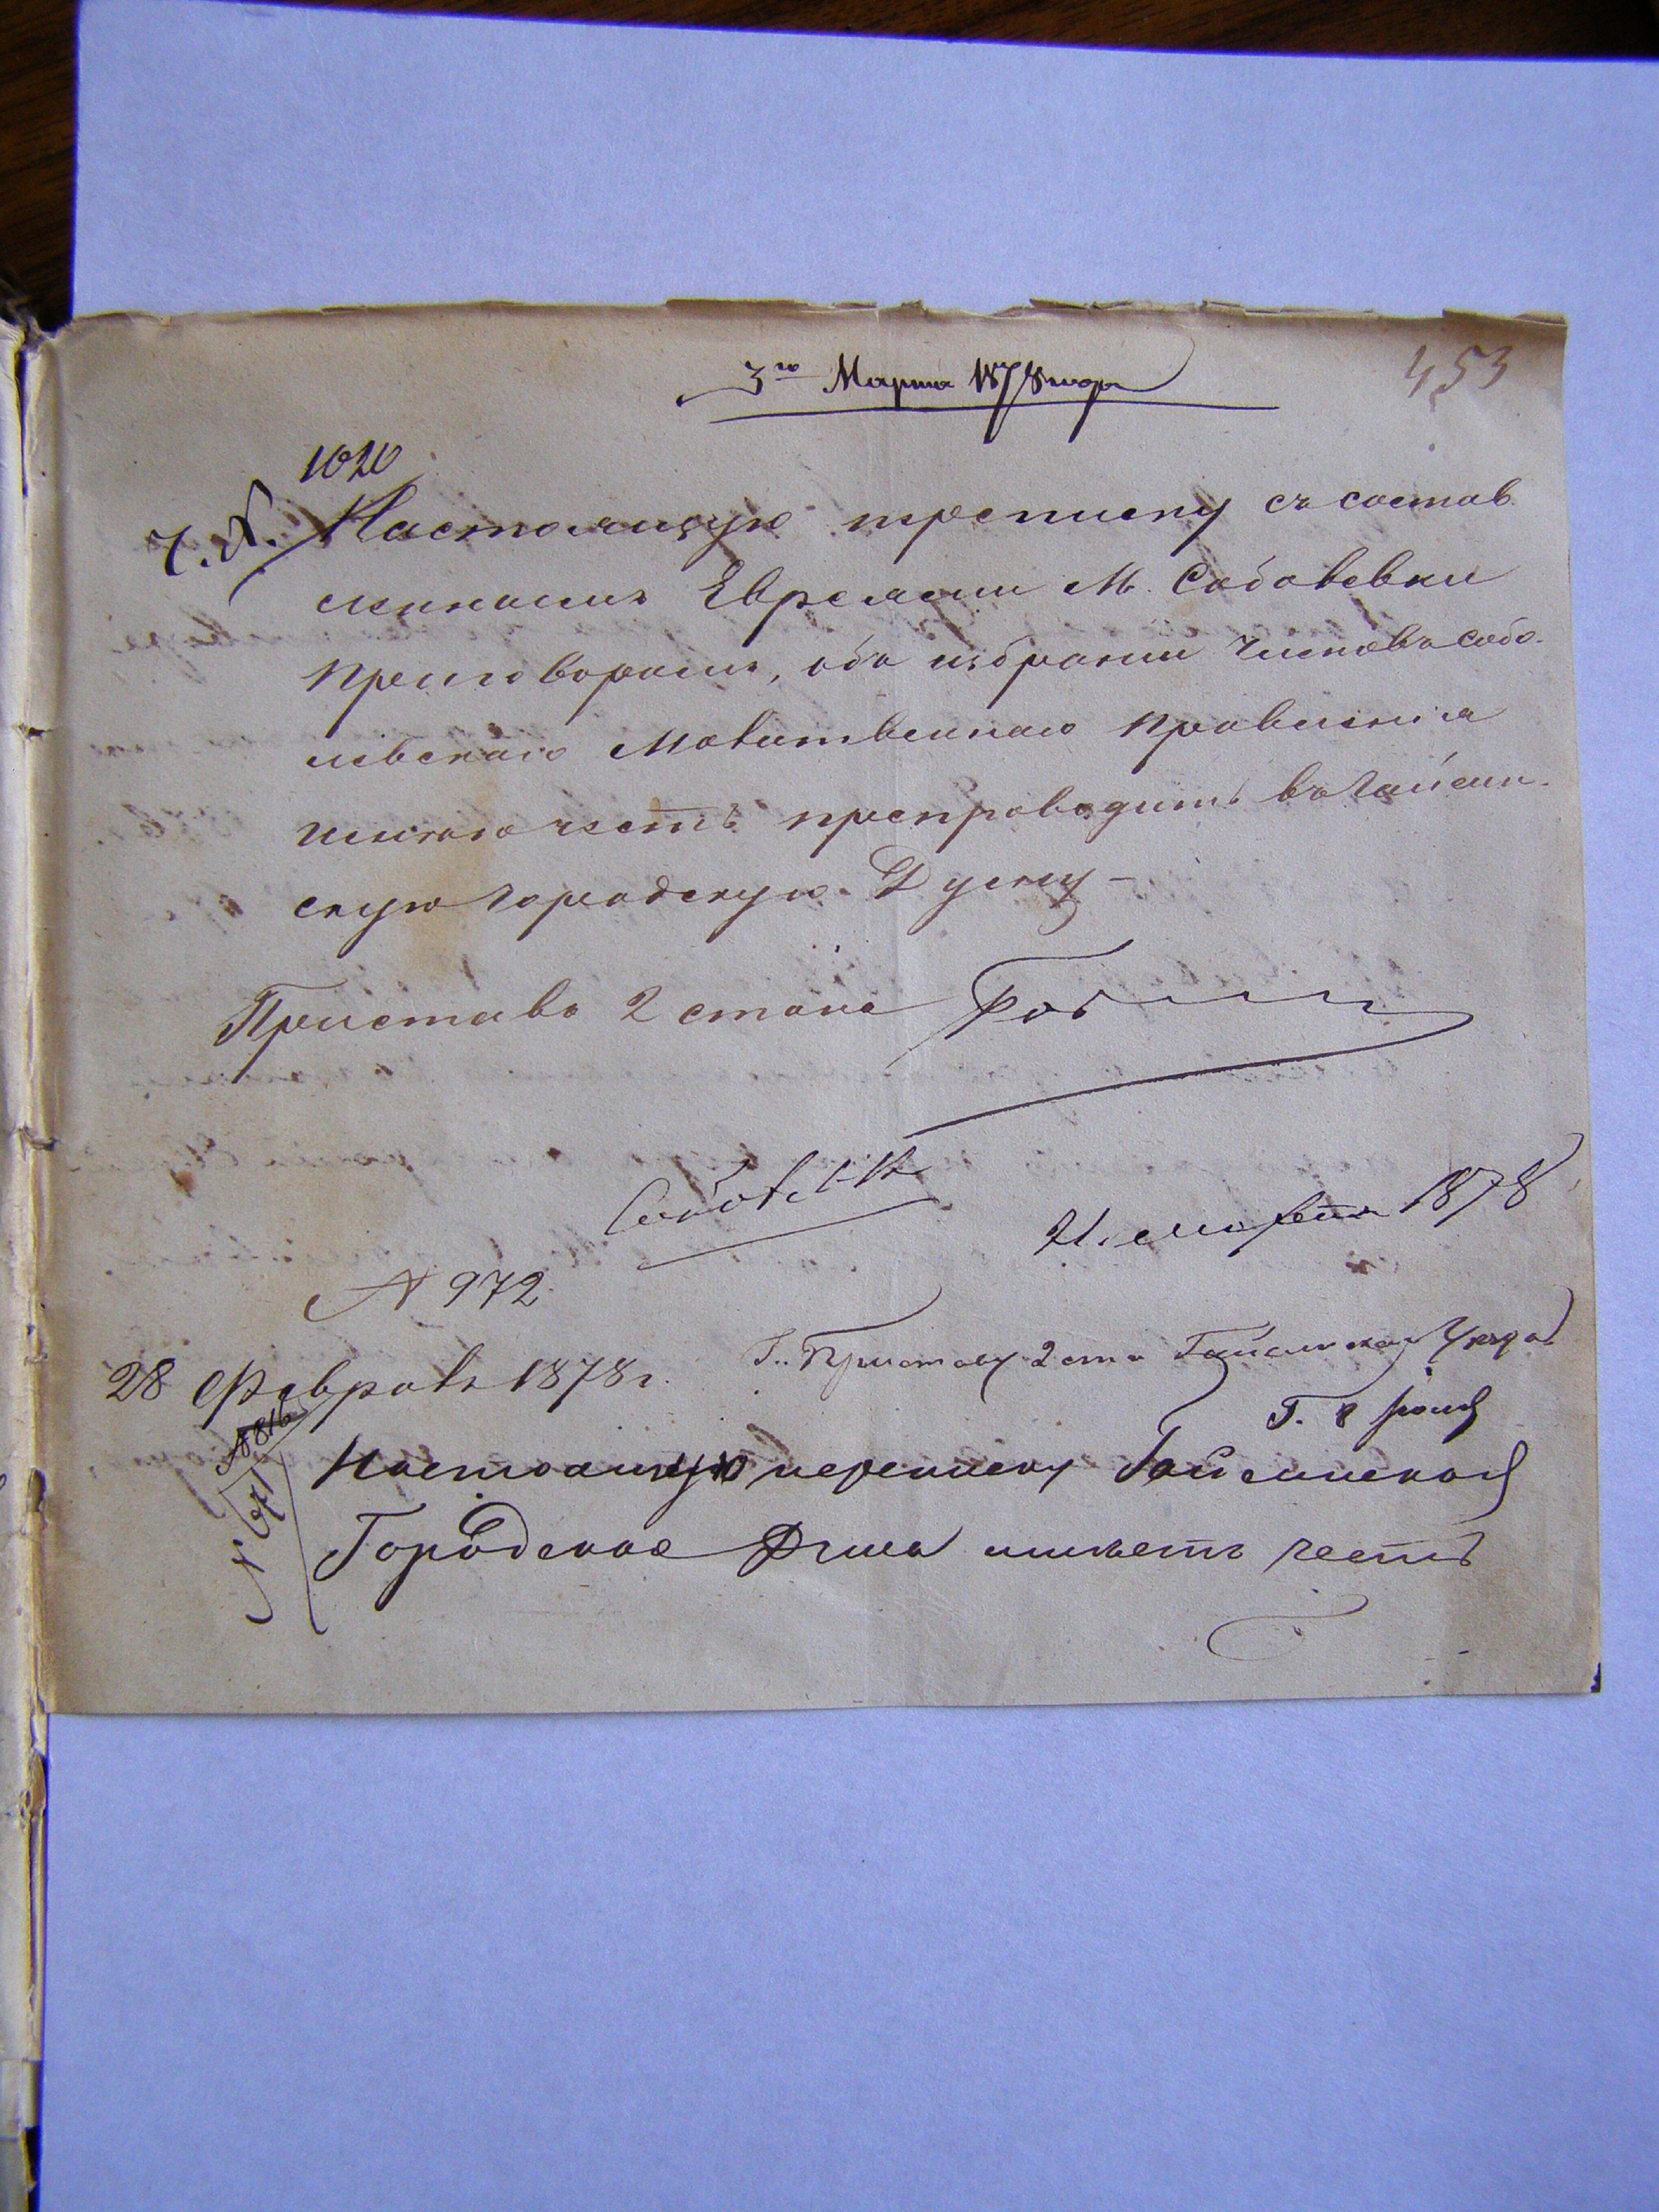 453
3го Марта 1878 года
1020
Настоящую преписку съ состав
леннымъ Евреями М. Соболевки
приговоромъ, объ избраніи Членовъ Собо-
левскаго Молитвеннаго Правленія
имѣю честь препроводить въ Гайсин-
скую Городскую Думу –
Приставъ 2 стана
Соболевка
21 марта 1878
№ 972.
28 Февраля 1878 г.
Г. Приставу 2 ста Гайсинскаго Уѣзда
№ 816
Настоящую переписку Гайсинская
Городская Дума имѣетъ честь